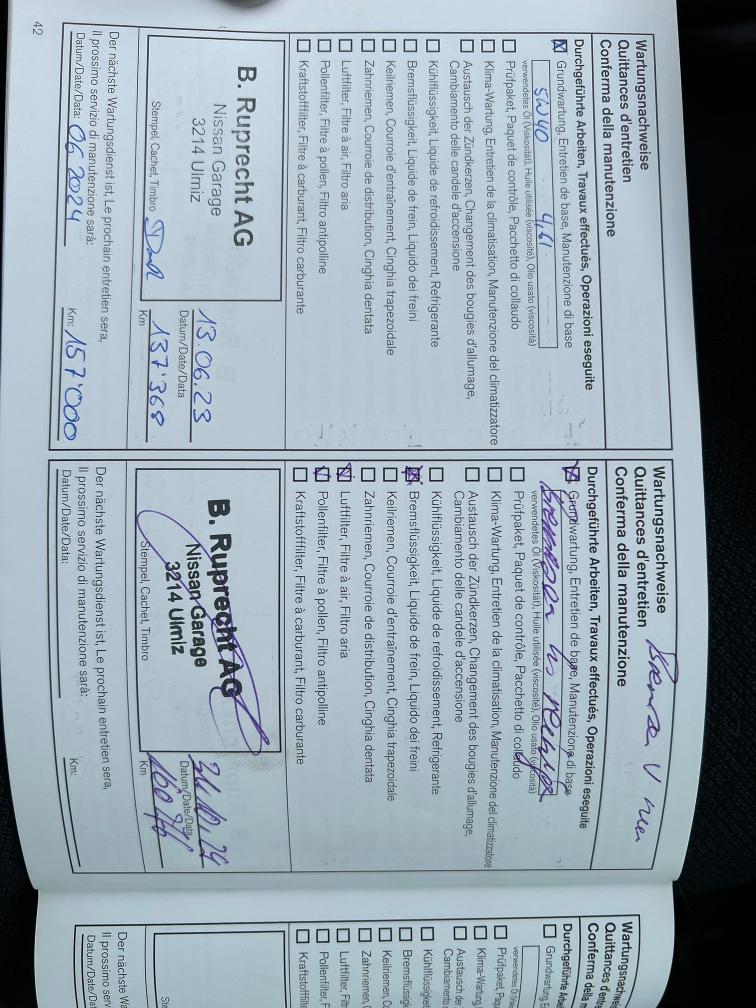 Wartungsnachweise
Quittances d'entretien
Conferma della manutenzione
Durchgeführte Arbeiten, Travaux effectués, Operazioni eseguite
☒ Grundwartung, Entretien de base, Manutenzione di base
verwendetes Öl (Viskosität), Huile utilisée (viscosité), Olio usato (viscosità)
5W40 4,6l
☐ Prüfpaket, Paquet de contrôle, Pacchetto di collaudo
☐ Klima-Wartung, Entretien de la climatisation, Manutenzione del climatizzatore
☐ Austausch der Zündkerzen, Changement des bougies d'allumage,
Cambiamento delle candele d'accensione
☐ Kühlflüssigkeit, Liquide de refroidissement, Refrigerante
☐ Bremsflüssigkeit, Liquide de frein, Liquido dei freini
☐ Keilriemen, Courroie d'entraînement, Cinghia trapezoidale
☐ Zahnriemen, Courroie de distribution, Cinghia dentata
☐ Luftfilter, Filtre à air, Filtro aria
☐ Pollenfilter, Filtre à pollen, Filtro antipolline
☐ Kraftstofffilter, Filtre à carburant, Filtro carburante
B. Ruprecht AG
Nissan Garage
3214 Ulmiz
Stempel, Cachet, Timbro
13.06.23
Datum/Date/Data
137'368
Km
Der nächste Wartungsdienst ist, Le prochain entretien sera,
Il prossimo servizio di manutenzione sarà:
Datum/Date/Data: 06 2024 Km: 157'000
42
Wartungsnachweise
Quittances d'entretien
Conferma della manutenzione
Bremsen V neu
Durchgeführte Arbeiten, Travaux effectués, Operazioni eseguite
☒ Grundwartung, Entretien de base, Manutenzione di base
verwendetes Öl (Viskosität), Huile utilisée (viscosité), Olio usato (viscosità)
Bremsen
☐ Prüfpaket, Paquet de contrôle, Pacchetto di collaudo
☐ Klima-Wartung, Entretien de la climatisation, Manutenzione del climatizzatore
☐ Austausch der Zündkerzen, Changement des bougies d'allumage,
Cambiamento delle candele d'accensione
☐ Kühlflüssigkeit, Liquide de refroidissement, Refrigerante
☒ Bremsflüssigkeit, Liquide de frein, Liquido dei freini
☐ Keilriemen, Courroie d'entraînement, Cinghia trapezoidale
☐ Zahnriemen, Courroie de distribution, Cinghia dentata
☒ Luftfilter, Filtre à air, Filtro aria
☒ Pollenfilter, Filtre à pollen, Filtro antipolline
☐ Kraftstofffilter, Filtre à carburant, Filtro carburante
B. Ruprecht AG
Nissan Garage
3214 Ulmiz
Stempel, Cachet, Timbro
Datum/Date/Data
Km
Der nächste Wartungsdienst ist, Le prochain entretien sera,
Il prossimo servizio di manutenzione sarà:
Datum/Date/Data: Km:
Wartungsnach
Quittances d'e
Conferma della
Durchgeführte Arbei
☐ Grundwartung, E
verwendetes Öl (Visk
☐ Prüfpaket, Paq
☐ Klima-Wartung
☐ Austausch der
Cambiamento
☐ Kühlflüssigkei
☐ Bremsflüssigk
☐ Keilriemen, Co
☐ Zahnriemen,
☐ Luftfilter, Filt
☐ Pollenfilter, F
☐ Kraftstofffilt
Ste
Der nächste Wa
Il prossimo serv
Datum/Date/Dat